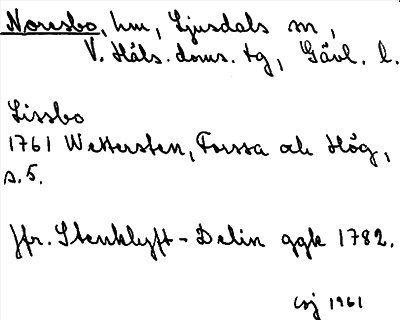 Noresbo, hm, Ljusdals sn,
V. Häls. doms. tg, Gävl. l.
Lissbo
1761 Wettersten, Forssa ok Hög,
s. 5.
Jfr. Stenklyft-Delin ggk 1782.
1961